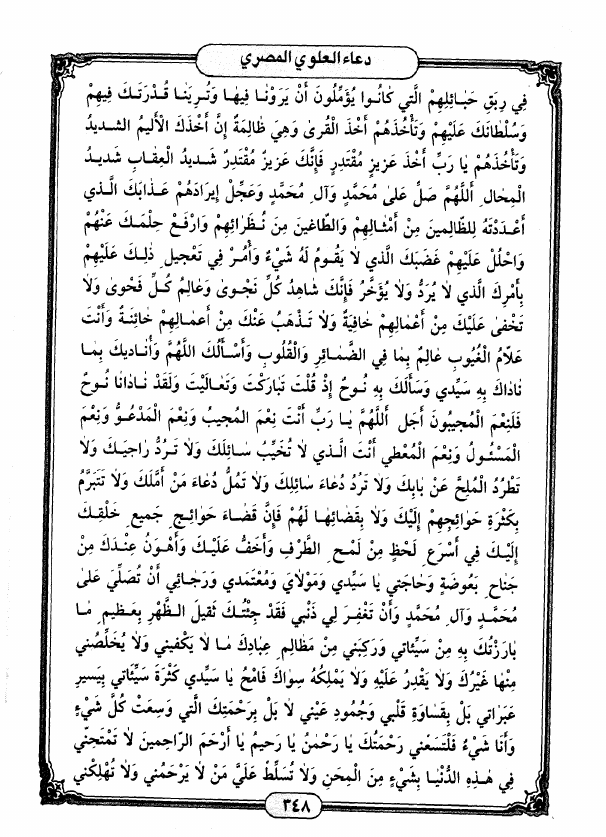 دعاء العلوي المصري
فِي رِبَقِ حَبَائِلِهِمُ الَّتِي كَانُوا يُؤَمِّلُونَ أَنْ يَرَوْنَا فِيهَا وَتُرِيَنَا قُدْرَتَكَ فِيهِمْ
وَسُلْطَانَكَ عَلَيْهِمْ وَتَأْخُذَهُمْ أَخْذَ الْقُرىٰ وَهِيَ ظَالِمَةٌ إِنَّ أَخْذَكَ الْأَلِيمُ الشَّدِيدُ
وَتَأْخُذَهُمْ يَا رَبِّ أَخْذَ عَزِيزٍ مُقْتَدِرٍ فَإِنَّكَ عَزِيزٌ مُقْتَدِرٌ شَدِيدُ الْعِقَابِ شَدِيدُ
الْمِحَالِ أَللَّهُمَّ صَلِّ عَلىٰ مُحَمَّدٍ وَآلِ مُحَمَّدٍ وَعَجِّلْ إِيرَادَهُمْ عَذَابَكَ الَّذِي
أَعْدَدْتَهُ لِلظَّالِمِينَ مِنْ أَمْثَالِهِمْ وَالطَّاغِينَ مِنْ نُظَرَائِهِمْ وَارْفَعْ حِلْمَكَ عَنْهُمْ
وَاحْلُلْ عَلَيْهِمْ غَضَبَكَ الَّذِي لَا يَقُومُ لَهُ شَيْءٌ وَأْمُرْ فِي تَعْجِيلِ ذٰلِكَ عَلَيْهِمْ
بِأَمْرِكَ الَّذِي لَا يُرَدُّ وَلَا يُؤَخَّرُ فَإِنَّكَ شَاهِدُ كُلِّ نَجْوىٰ وَعَالِمُ كُلِّ فَحْوىٰ وَلَا
تَخْفىٰ عَلَيْكَ مِنْ أَعْمَالِهِمْ خَافِيَةٌ وَلَا تَذْهَبُ عَنْكَ مِنْ أَعْمَالِهِمْ خَائِنَةٌ وَأَنْتَ
عَلَّامُ الْغُيُوبِ عَالِمٌ بِمَا فِي الضَّمَائِرِ وَالْقُلُوبِ وَأَسْأَلُكَ اللَّهُمَّ وَأُنَادِيكَ بِمَا
نَادَاكَ بِهِ سَيِّدِي وَسَأَلَكَ بِهِ نُوحٌ إِذْ قُلْتَ تَبَارَكْتَ وَتَعَالَيْتَ وَلَقَدْ نَادَانَا نُوحٌ
فَلَنِعْمَ الْمُجِيبُونَ أَجَلْ أَللَّهُمَّ يَا رَبِّ أَنْتَ نِعْمَ الْمُجِيبُ وَنِعْمَ الْمَدْعُوُّ وَنِعْمَ
الْمَسْئُولُ وَنِعْمَ الْمُعْطِي أَنْتَ الَّذِي لَا تُخَيِّبُ سَائِلَكَ وَلَا تَرُدُّ رَاجِيَكَ وَلَا
تَطْرُدُ الْمُلِحَّ عَنْ بَابِكَ وَلَا تَرُدُّ دُعَاءَ سَائِلِكَ وَلَا تَمُلُّ دُعَاءَ مَنْ أَمَّلَكَ وَلَا تَتَبَرَّمُ
بِكَثْرَةِ حَوَائِجِهِمْ إِلَيْكَ وَلَا بِقَضَائِهَا لَهُمْ فَإِنَّ قَضَاءَ حَوَائِجِ جَمِيعِ خَلْقِكَ
إِلَيْكَ فِي أَسْرَعِ لَحْظٍ مِنْ لَمْحِ الطَّرْفِ وَأَخَفُّ عَلَيْكَ وَأَهْوَنُ عِنْدَكَ مِنْ
جَنَاحِ بَعُوضَةٍ وَحَاجَتِي يَا سَيِّدِي وَمَوْلَايَ وَمُعْتَمَدِي وَرَجَائِي أَنْ تُصَلِّيَ عَلىٰ
مُحَمَّدٍ وَآلِ مُحَمَّدٍ وَأَنْ تَغْفِرَ لِي ذَنْبِي فَقَدْ جِئْتُكَ ثَقِيلَ الظَّهْرِ بِعَظِيمِ مَا
بَارَزْتُكَ بِهِ مِنْ سَيِّئَاتِي وَرَكِبَنِي مِنْ مَظَالِمِ عِبَادِكَ مَا لَا يَكْفِينِي وَلَا يُخَلِّصُنِي
مِنْهَا غَيْرُكَ وَلَا يَقْدِرُ عَلَيْهِ وَلَا يَمْلِكُهُ سِوَاكَ فَامْحُ يَا سَيِّدِي كَثْرَةَ سَيِّئَاتِي بِيَسِيرِ
عَبَرَاتِي بَلْ بِقَسَاوَةِ قَلْبِي وَجُمُودِ عَيْنِي لَا بَلْ بِرَحْمَتِكَ الَّتِي وَسِعَتْ كُلَّ شَيْءٍ
وَأَنَا شَيْءٌ فَلْتَسَعْنِي رَحْمَتُكَ يَا رَحْمٰنُ يَا رَحِيمُ يَا أَرْحَمَ الرَّاحِمِينَ لَا تَمْتَحِنِّي
فِي هٰذِهِ الدُّنْيَا بِشَيْءٍ مِنَ الْمِحَنِ وَلَا تُسَلِّطْ عَلَيَّ مَنْ لَا يَرْحَمُنِي وَلَا تُهْلِكْنِي
٣٤٨